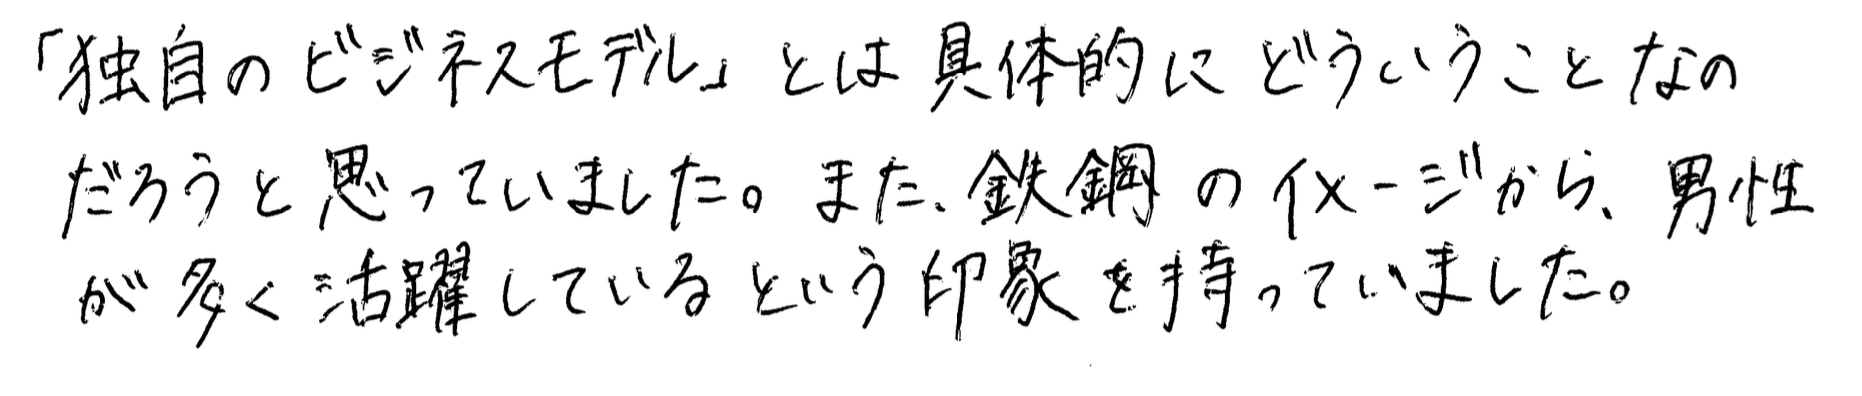 「独自のビジネスモデル」とは具体的にどういうことなの
だろうと思っていました。また、鉄鋼のイメージから、男性
が多く活躍しているという印象を持っていました。